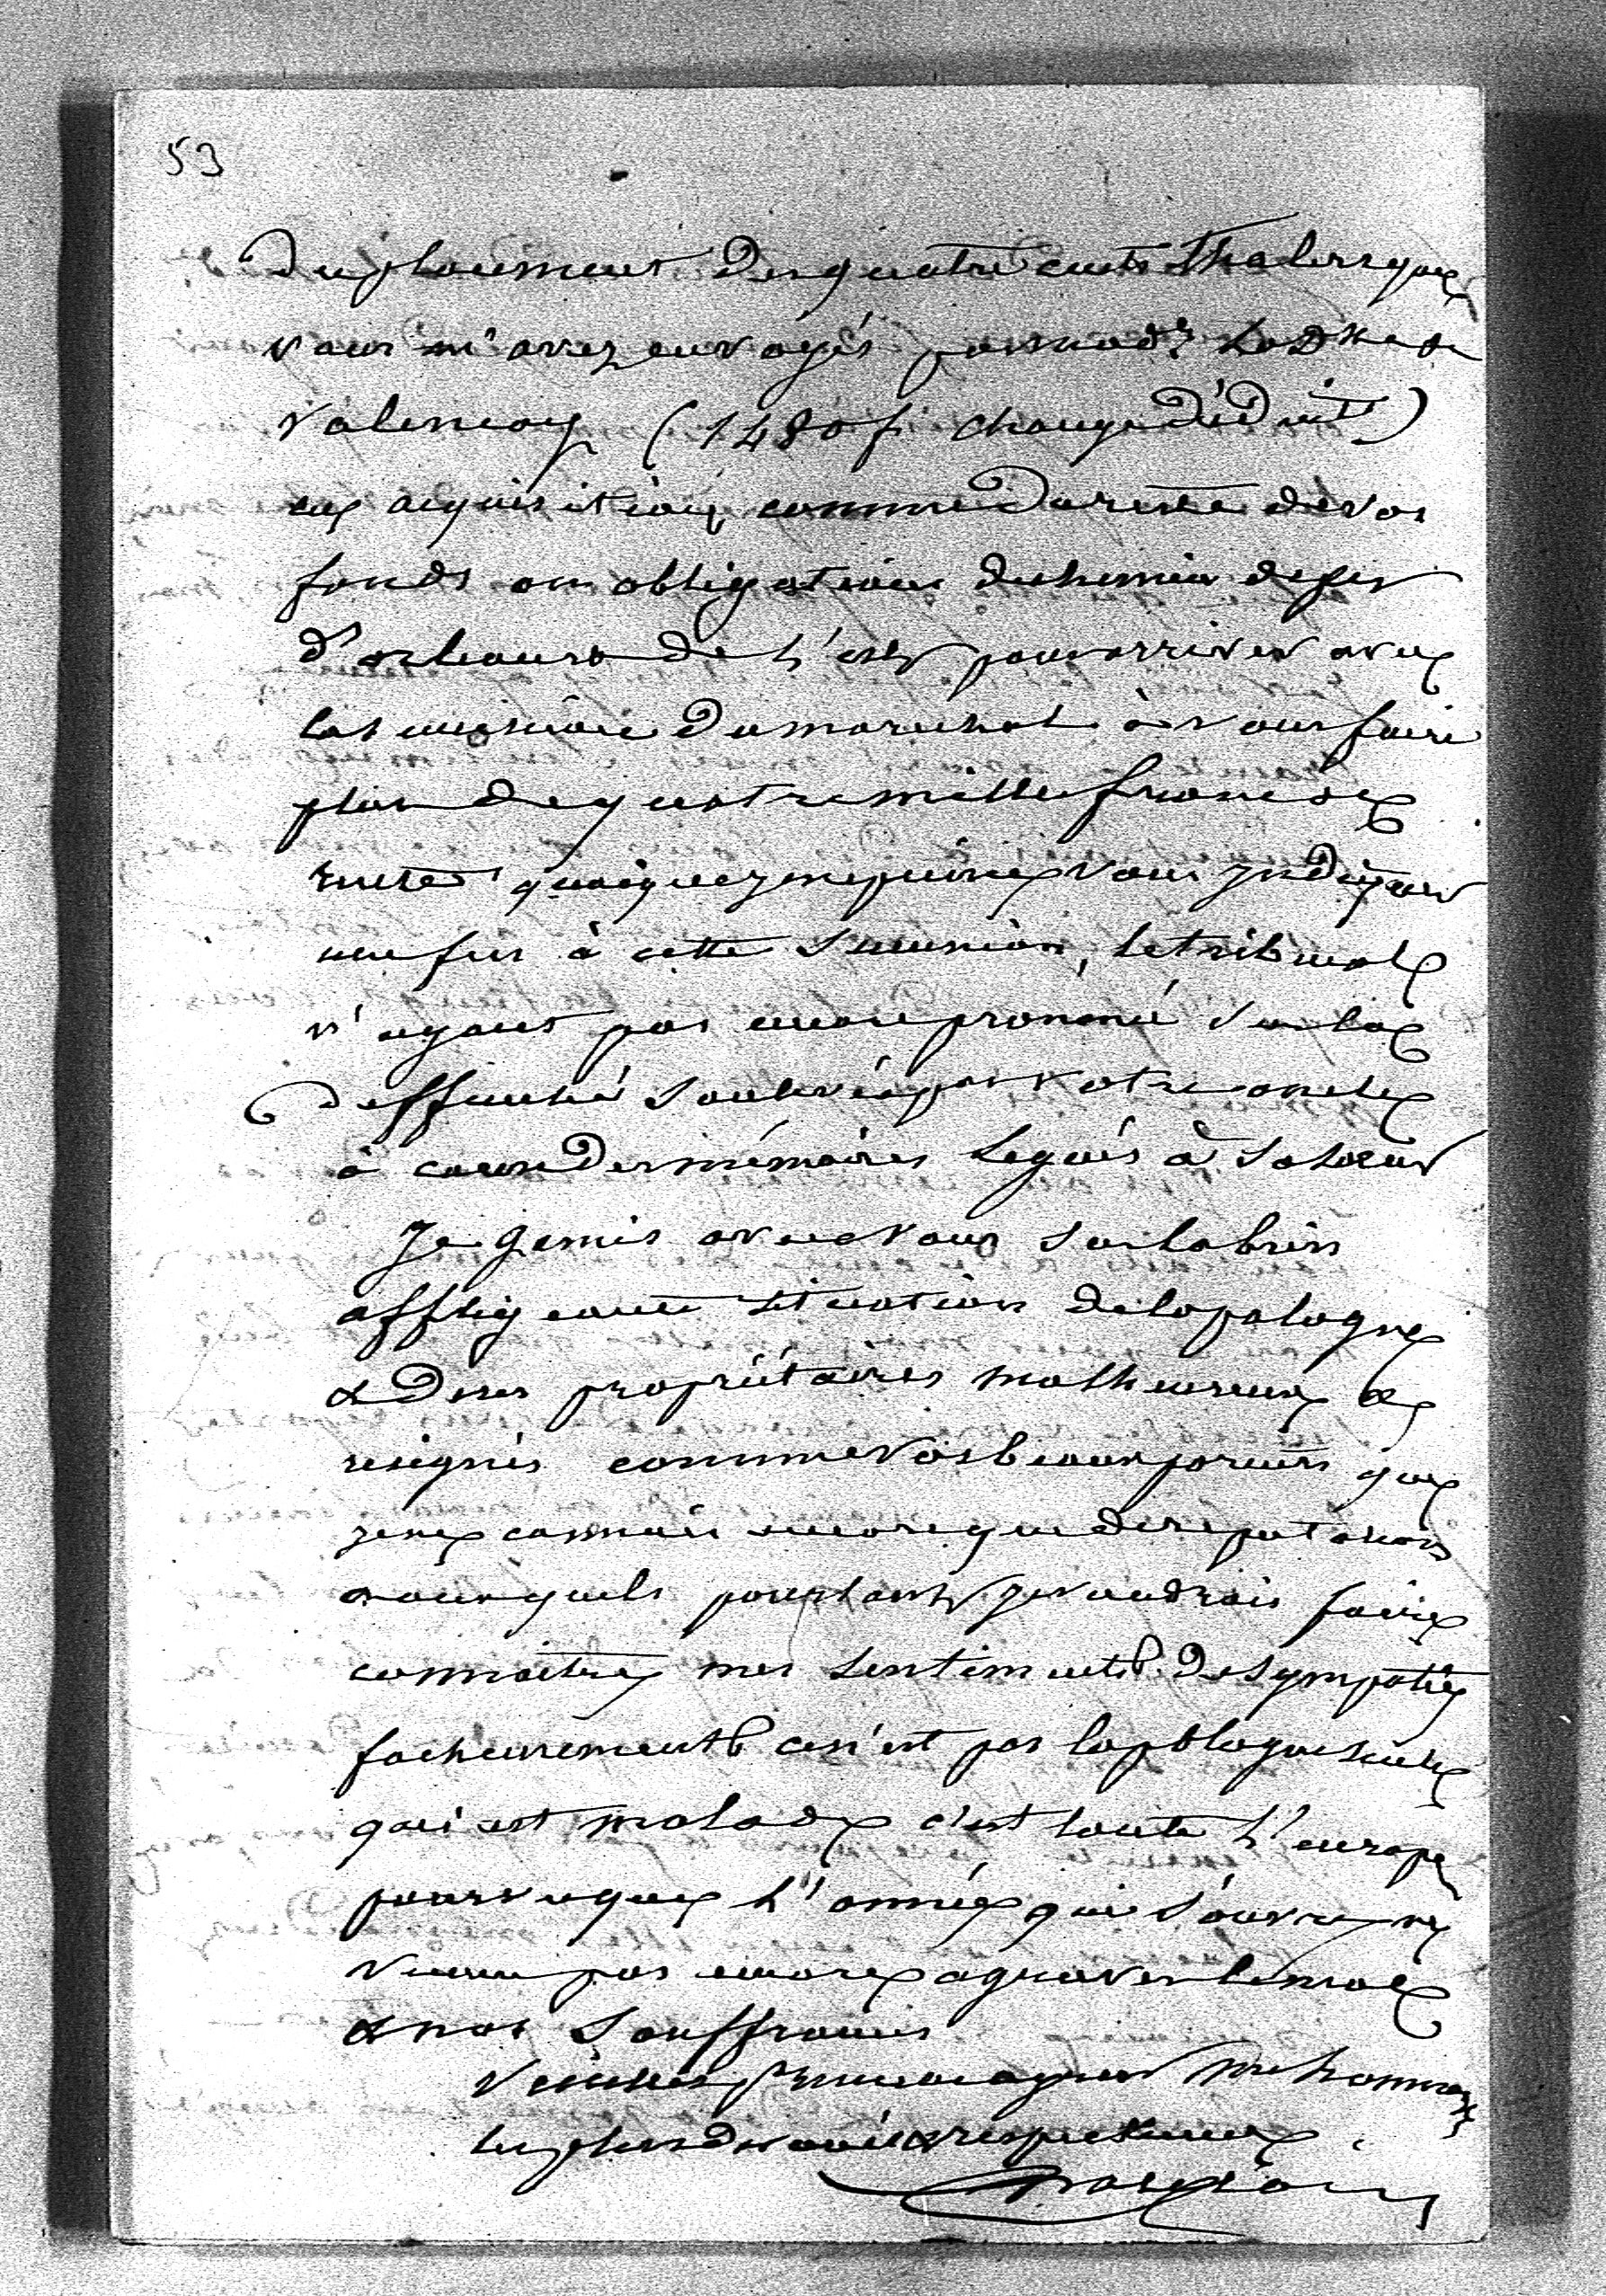 53
Du placement des quatre cents thalers que
vous m'avez envoyés par mad. la Dsse de
valencay (1480 f. change déduit)
en acquisition comme Du reste de vos
fonds en obligations du chemin de fer
d'orleans de l'est pour arriver avec
la pension Du marechal à vous faire
plus de quatre mille francs de
rente quoique je ne puisse vous indiquer
une fin à cette succession, le tribunal
n'ayant pas encore prononcé sur la
Difficulté Soulevée par votre oncle
à cause Des mémoires Legués à sa Sœur
Je gemis avec vous sur la bien
affligeante situation de la pologne
& De ses propriétaires malheureux &
resignés comme vos beaux parents que
je ne connais encore que de reputation
auxquels pourtant je voudrais faire
connaitre mes sentiments De sympathie
facheusement ce n'est pas la pologne seule
qui est malade c'est toute l'europe
pourvu que l'année qui s'ouvre ne
vienne pas encore aggraver le mal
& nos Souffrances
veuillez, Princesse agréer mes hommages
les plus devoués & respectueux.